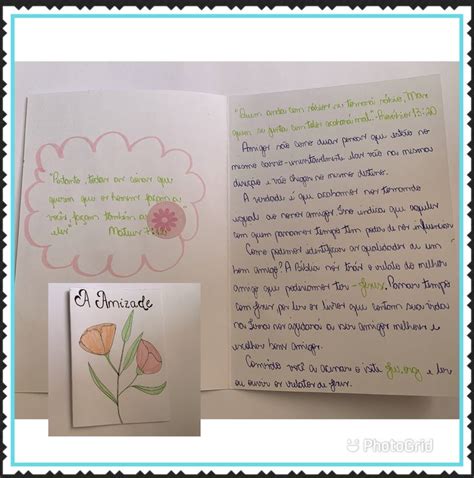 "Portanto, todas as coisas que
querem que os homens façam a
vocês façam também a
eles"
Mateus 7:12
A Amizade
"Quem anda com sábios se tornará sábio, Mas
quem se junta com tolos acabará mal." - Provérbios 13:20
Amigos são como duas pessoas que estão no
mesmo carro - inevitavelmente elas vão na mesma
direção e vão chegar no mesmo destino.
A verdade é que acabamos nos tornando
iguais aos nossos amigos. Isso indica que aqueles
com quem passamos tempo têm poder de nos influenciar
Como podemos identificar as qualidades de um
bom amigo? A Bíblia nos traz o relato do melhor
amigo que poderíamos ter - Jesus. Passar tempo
com Jesus por ler os livros que contam sua vida
na Terra nos ajudará a ser amigos melhores e
escolher bons amigos.
Convido você a acessar o site jw.org e ler
ou ouvir os relatos de Jesus.
PhotoGrid